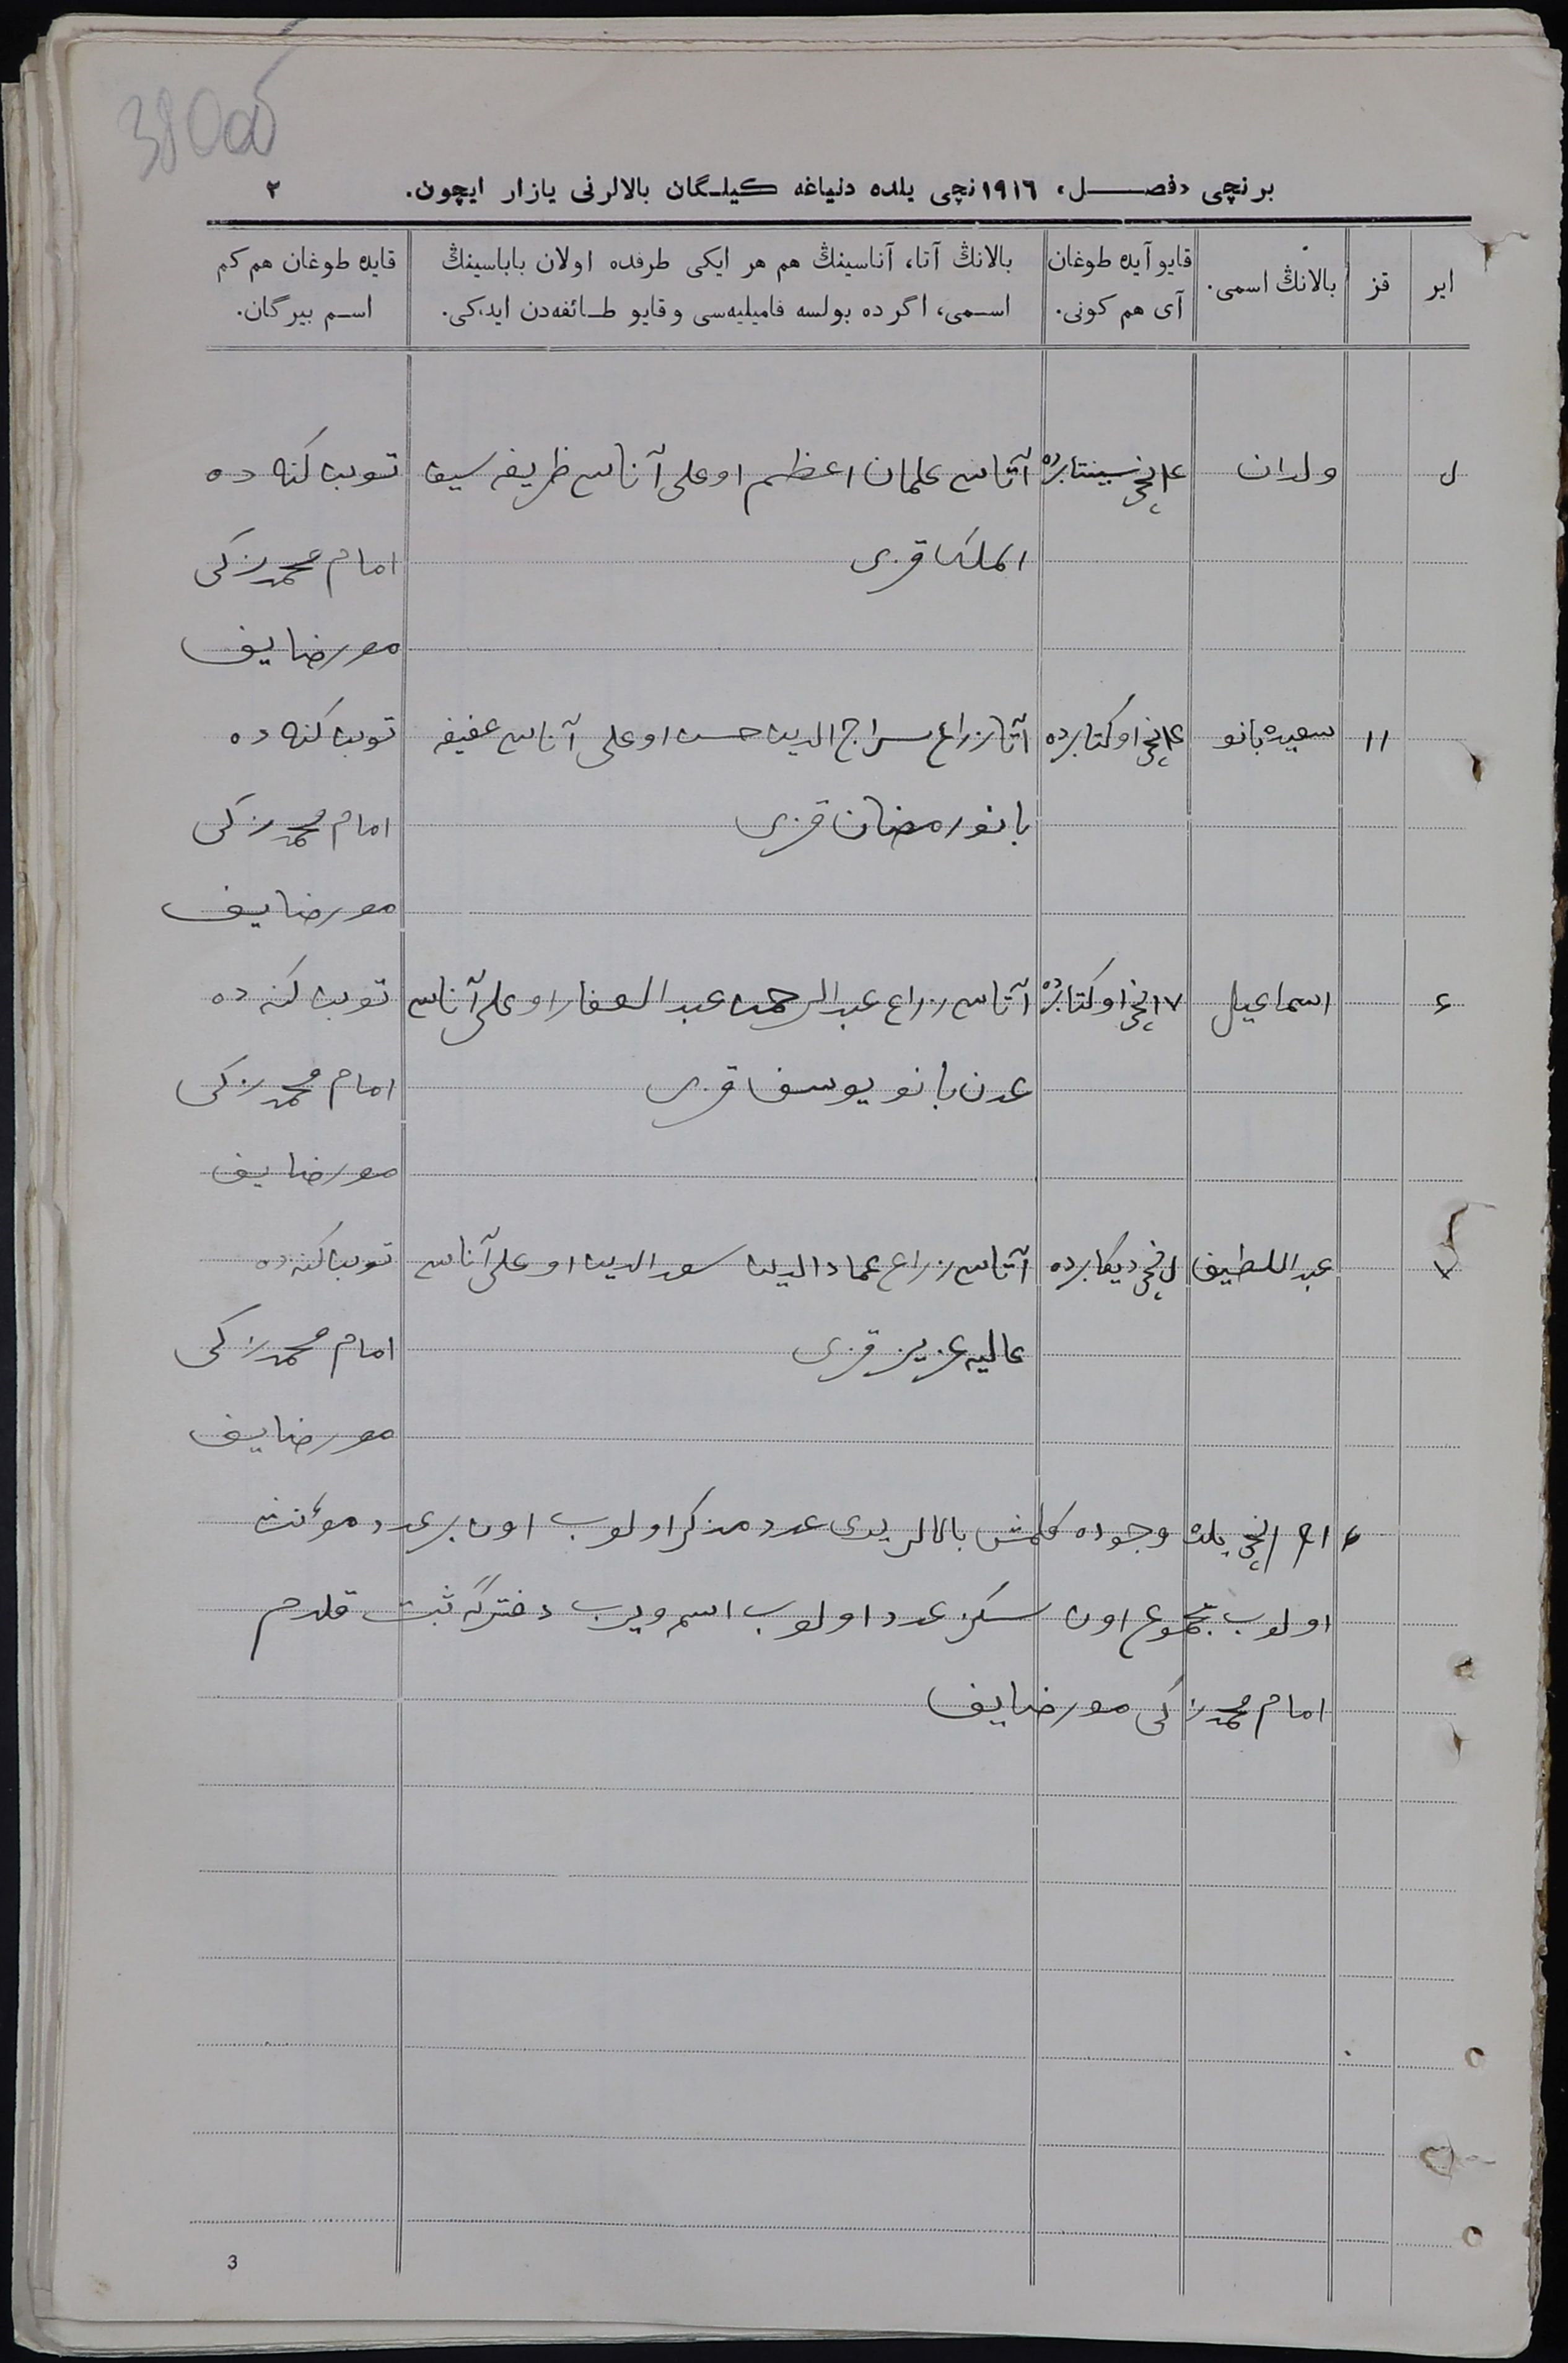 380 об
برنچی «فصل» ١٩١٦نچی یلده دنیاغه کیلگان بالالرنی یازار ایچون. ٢
ایر
قز
بالانڭ اسمی.
قایو آیده طوغان
آی هم کونی.
بالانڭ آتا، آناسینڭ هم هر ایکی طرفده اولان باباسینڭ
اسمی، اگر ده بولسه فامیلیه‌سی و قایو طائفه‌دن ایدکی.
قایده طوغان هم کم
اسم بیرگان.
ولدان
نچی سینتابرده
آتاسی علمان اعظم اوغلی آناسی ظریفه سیف
الملک قزی
کنه ده
امام محمدزکی
مورضایف
١١
سعیده بانو
نچی اوکتابرده
آتا زراع سراج الدین حسن اوغلی آناسی عفیفه
بانو رمضان قزی
کنه ده
امام محمدزکی
مورضایف
اسماعیل
١٧نچی اوکتابرده
آتاسی زراع عبد الرحمن عبد الغفار اوغلی آناسی
عدن بانو یوسف قزی
کنه ده
امام محمدزکی
مورضایف
٧
عبد اللطیف
نچی دیکابرده
آتاسی زراع عماد الدین سعد الدین اوغلی آناسی
عالیه عزیز قزی
کنه ده
امام محمدزکی
مورضایف
نچی یلده وجوده کلمش بالالر یدی عدد مذکر اولوب اون بر عدد مؤنث
اولوب مجموع اون سکز عدد اولوب اسم ویرب دفترگه ثبت قلدم
امام محمدزکی مورضایف
3